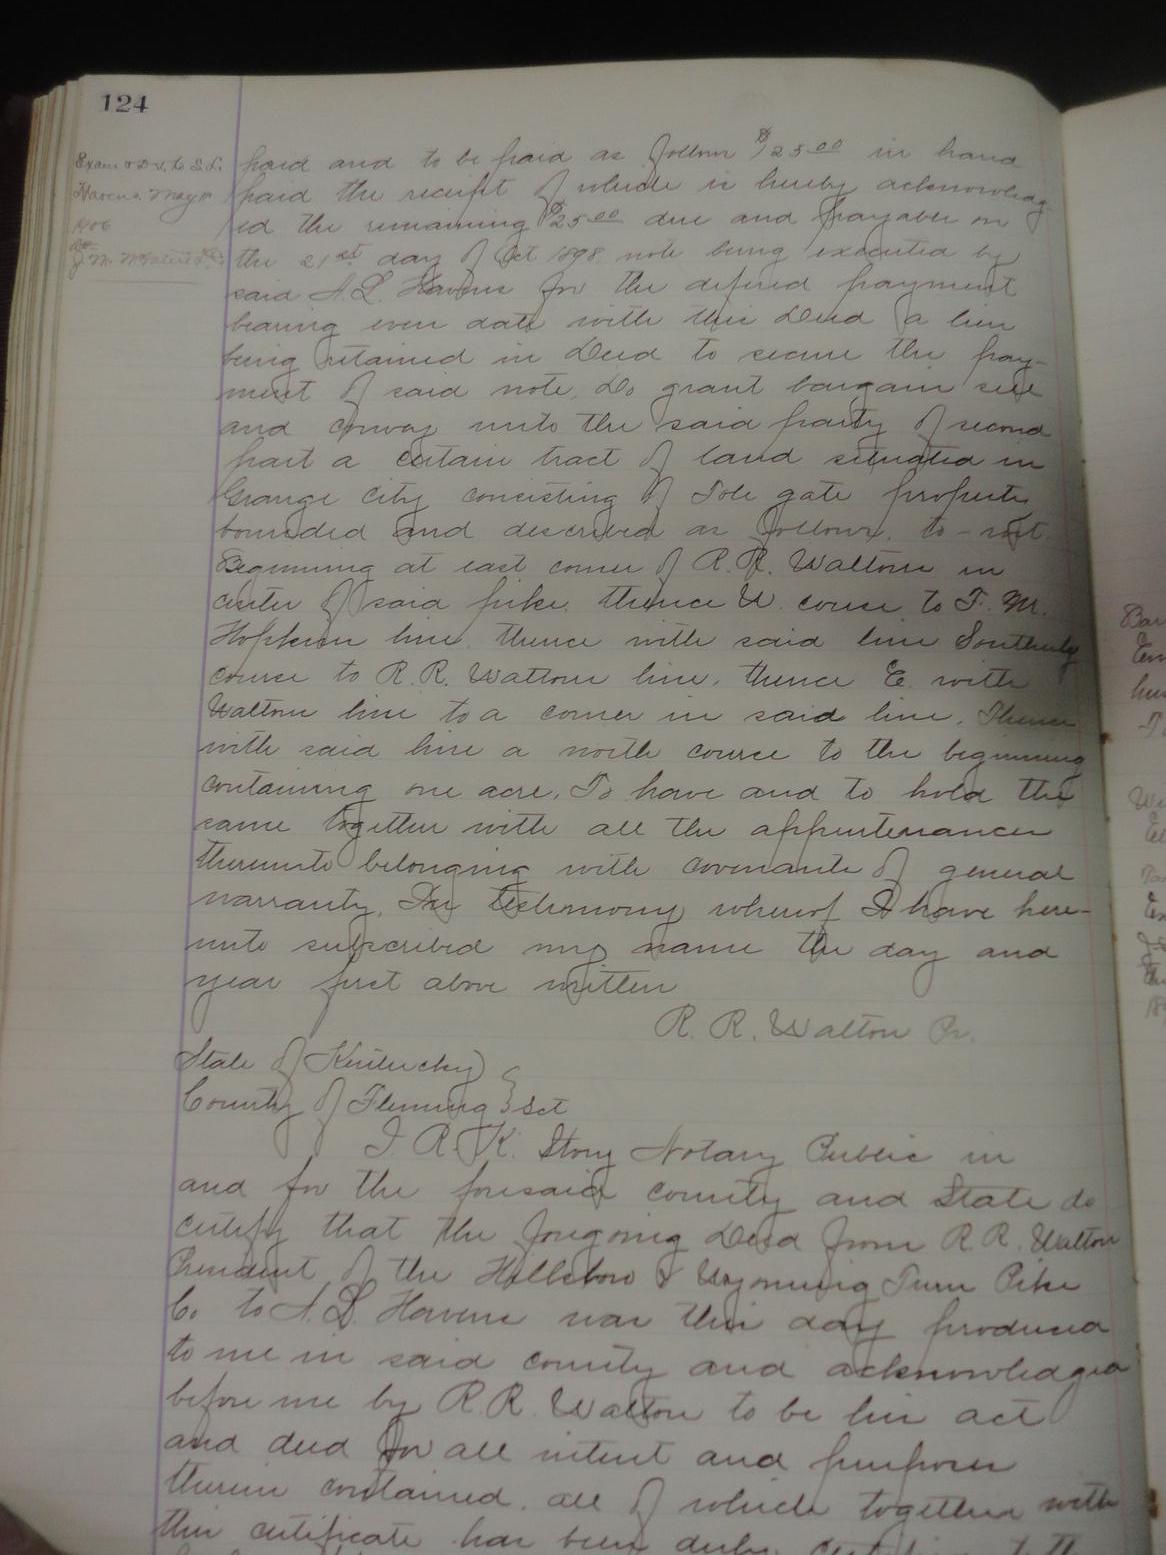 124
Exam & Del. to S. L.
Havens May
1906
J. M.
paid and to be paid as follow $125.00 in hand
paid the receipt of which is hereby acknowledg
ed the remaining $25.00 due and payable on
the 21st day of Oct 1898 note being executed by
said A. L. Havens for the defered payment
bearing even date with this Deed a lien
being retained in Deed to secure the pay-
ment of said note. Do grant bargain sell
and convey unto the said party of second
part a certain tract of land situated in
Grange City consisting of Tole gate property
bounded and described as follows, to-wit.
Beginning at east corner of R. R. Waltons in
center of said pike, thence W. course to T. M.
Hopkins line, thence with said line Southerly
course to R. R. Waltons line, thence E. with
Waltons line to a corner in said line, Thence
with said line a north course to the beginning
containing one acre. To have and to hold the
same together with all the appurtenances
thereunto belonging with covenants of general
warranty. In testimony whereof I have here-
unto subscribed my name the day and
year first above written
R. R. Walton Pr.
State of Kentucky
County of Fleming } Sct
I R. K. Story Notary Public in
and for the foresaid county and State do
certify that the foregoing Deed from R. R. Walton
President of the Hillsboro & Wyoming Turn Pike
Co to A. L. Havens was this day produced
to me in said county and acknowledged
before me by R R. Walton to be his act
and deed for all intent and purposes
therein contained. all of which together with
this certificate has been duly